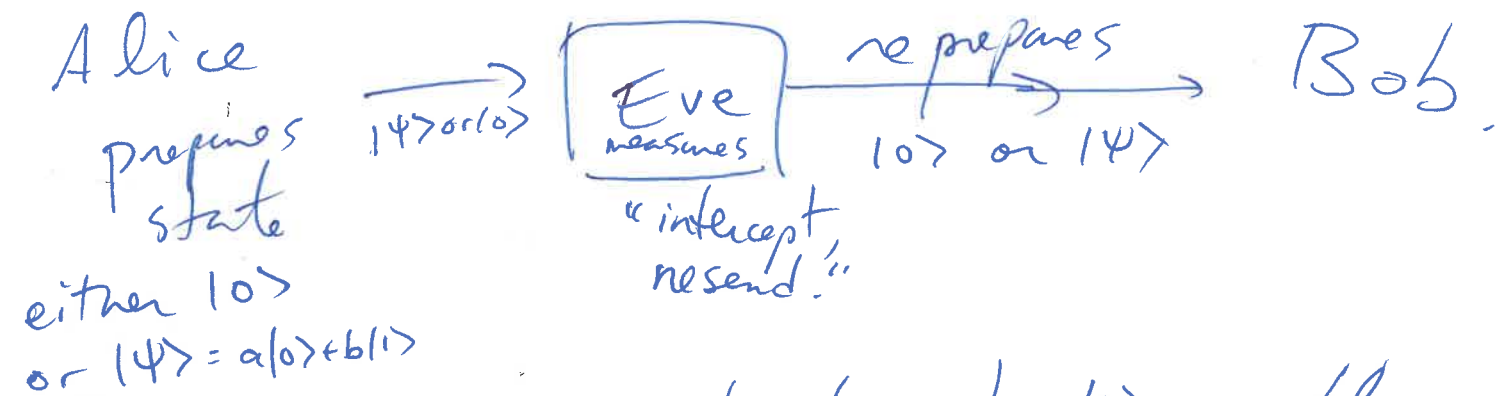 Alice
prepares
state
either |0>
or |Ψ> = a|0>+b|1>
|Ψ> or |0>
Eve
measures
"intercept,
resend."
reprepares
|0> or |Ψ>
Bob.